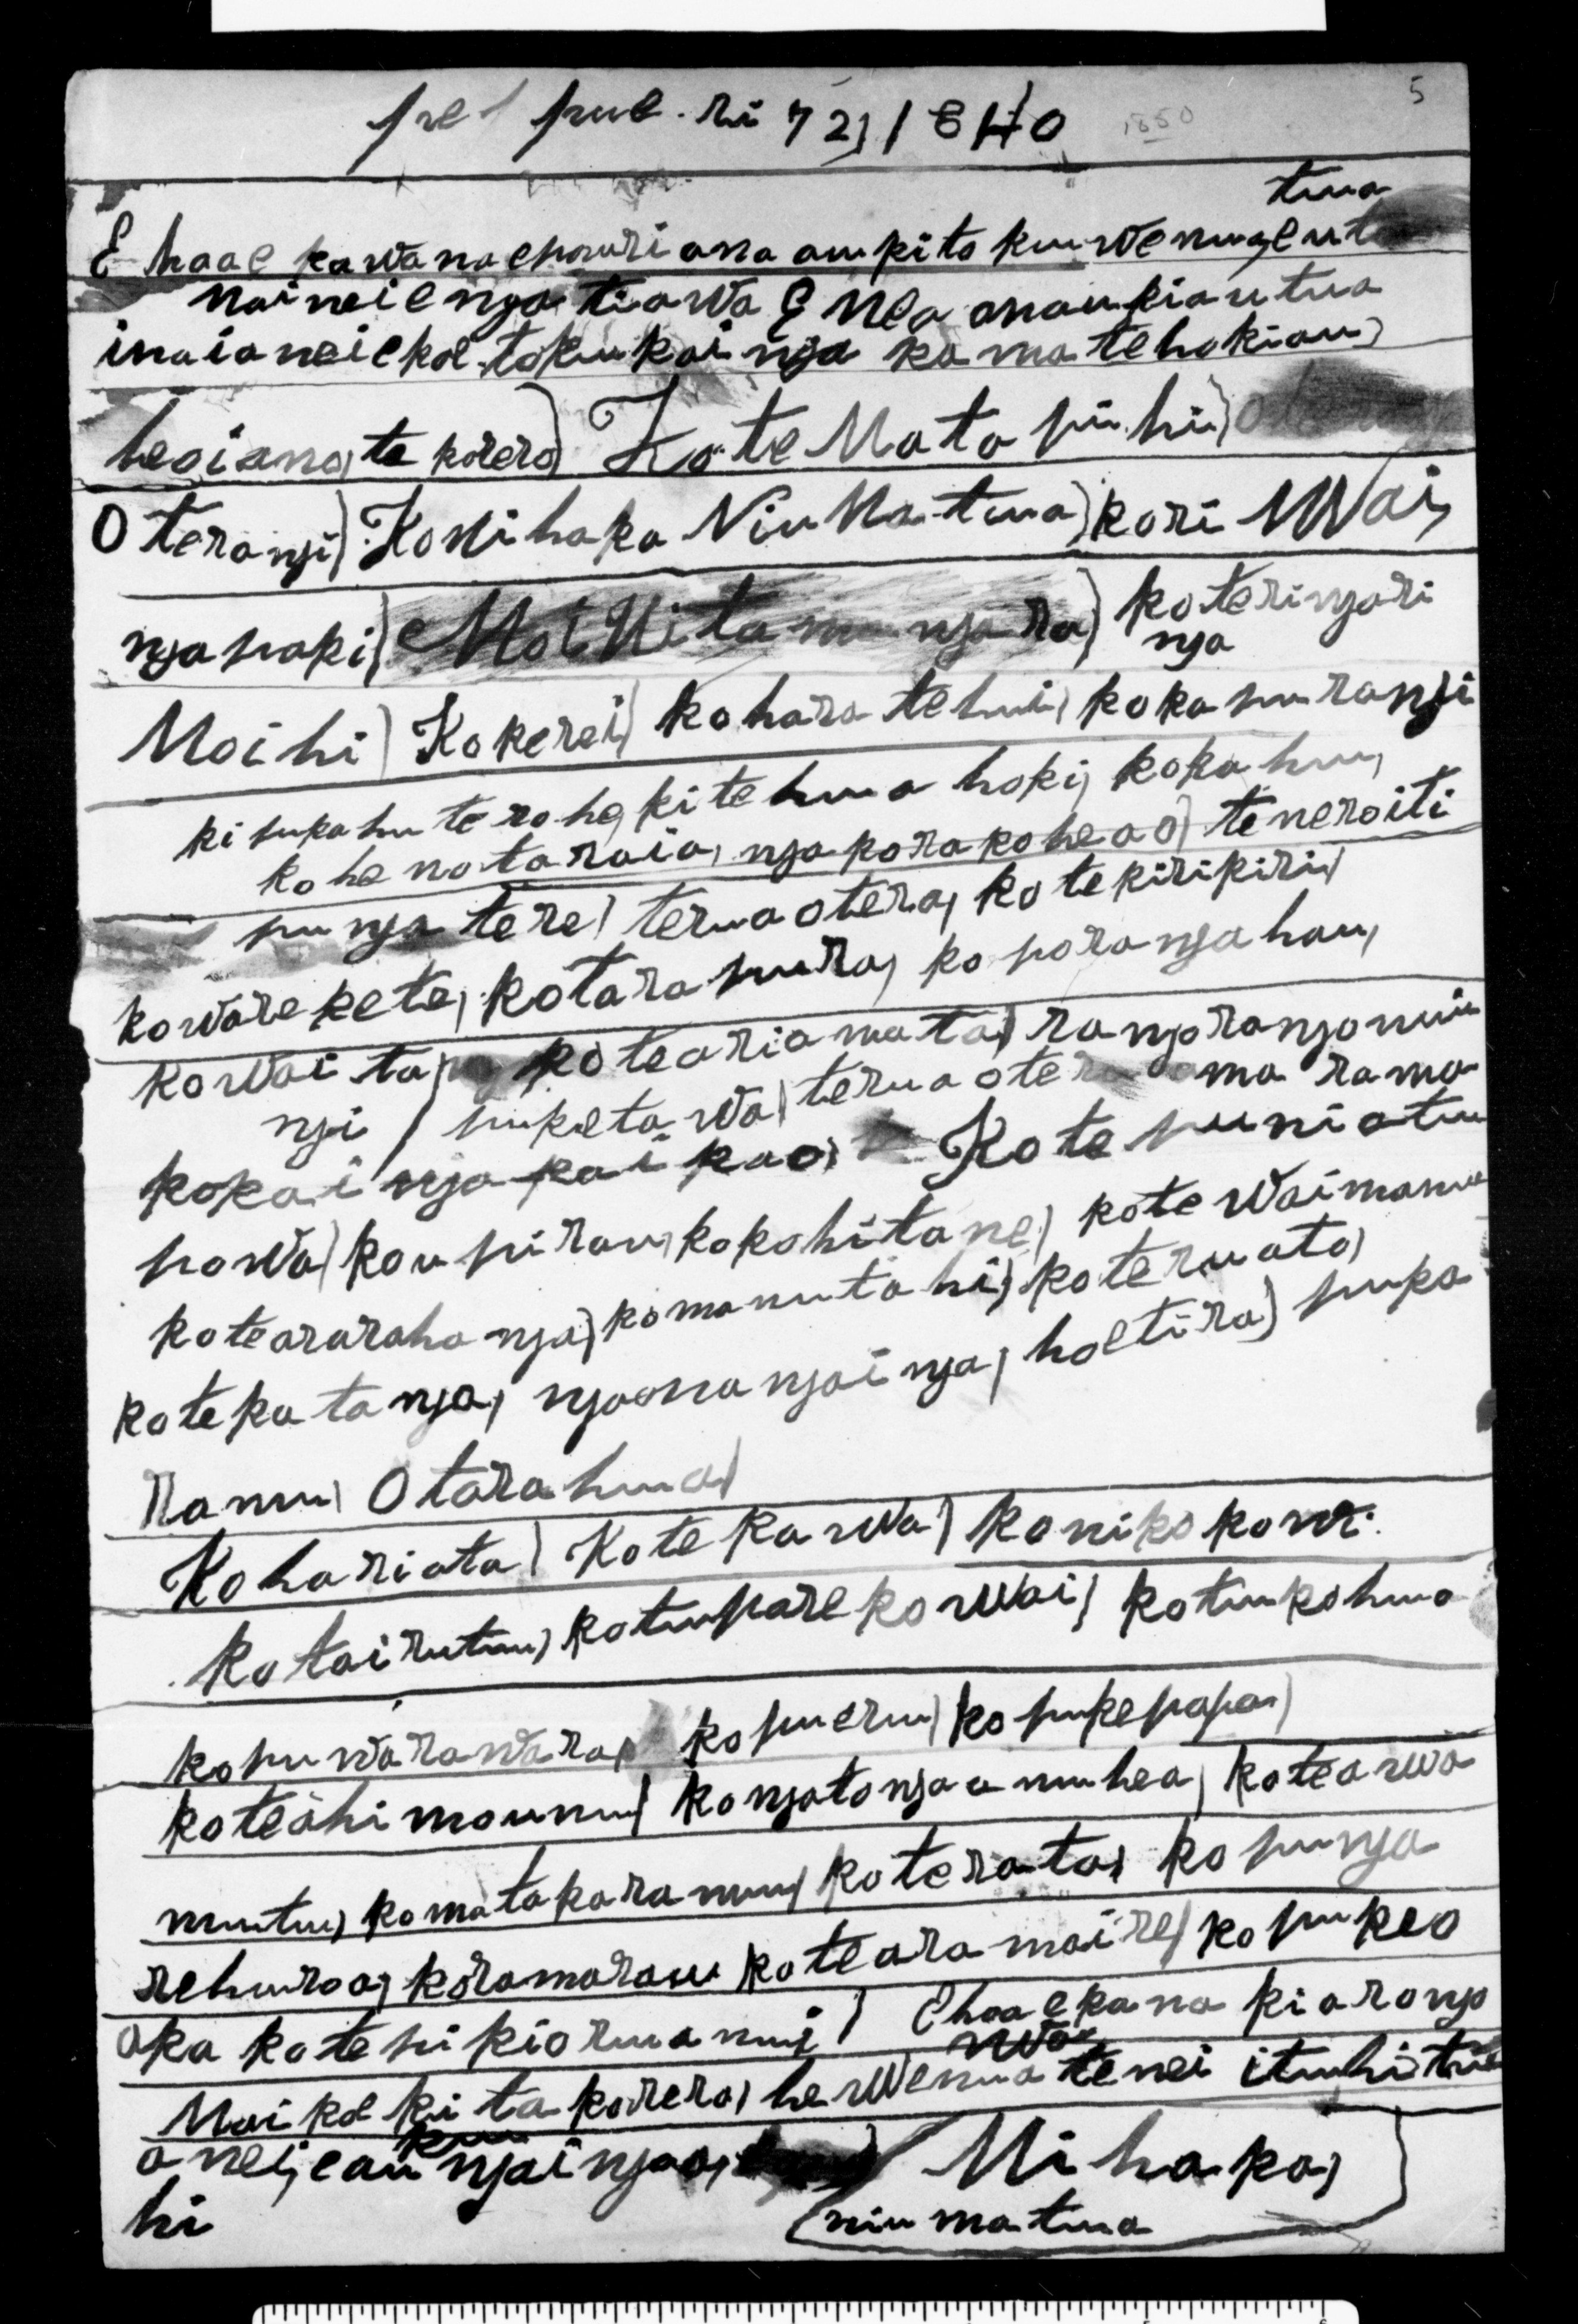 5
pepueri 72) 1840 1850
tua
E hoa e kawana epouri ana au ki toku wenua, e uta
nai nei e nga tiawa E Mea ana au kia utua
inaianei e koe toku kainga ka mate hoki au,
heoiano, te korero) Ko te Mata pihi)
O terangi) Ko Mihaka Niu Matua) kori Wai,
nga paki) Moi Mita nga ra) ko te ringari
nga
Moihi) Ko kerei) ko hara te hui, ko ka pu rangi
ki pukahu te rohe, ki te hua hoki, ko kahu,
ko he na taraia, nga kora kohea o) te neroiti
punga tere) terua otera, ko te kirikiri)
ko ware kete, ko tara pura, ko porangahau,
ko Wai tap ko te aria mata) rangorango nui
ngi / puketawa) terua ote ma rama
ko kainga kai kao, Ko te puni otu
powa) ko u pirau, ko kohitane) ko te Waimanu
ko te araraha nga) ko manutahi) ko teruata)
ko te kata nga, ngaona ngainga, hoe tira) puka
ranui Otarahua)
Ko hariata) Ko te kawa) ko nikokowi
ko tairutu, ko tupare ko wai) ko tukohua
ko pu warawara, ko pueru) ko pukepapa)
ko te ahi mounu) ko ngatonga a muhea, ko te awa
mutu, ko matakaranui) ko te rata, ko punga
rehuroa, ko ramarau ko te ara maire) ko pukeo
oka ko te pi kiorua nui) E hoa e kana ki a rongo
Mai koe ki ta korero, he Wenua tenei i tuhi tuhi
a nei, e au ku ngainga o, Mihaka,
hi niu matua